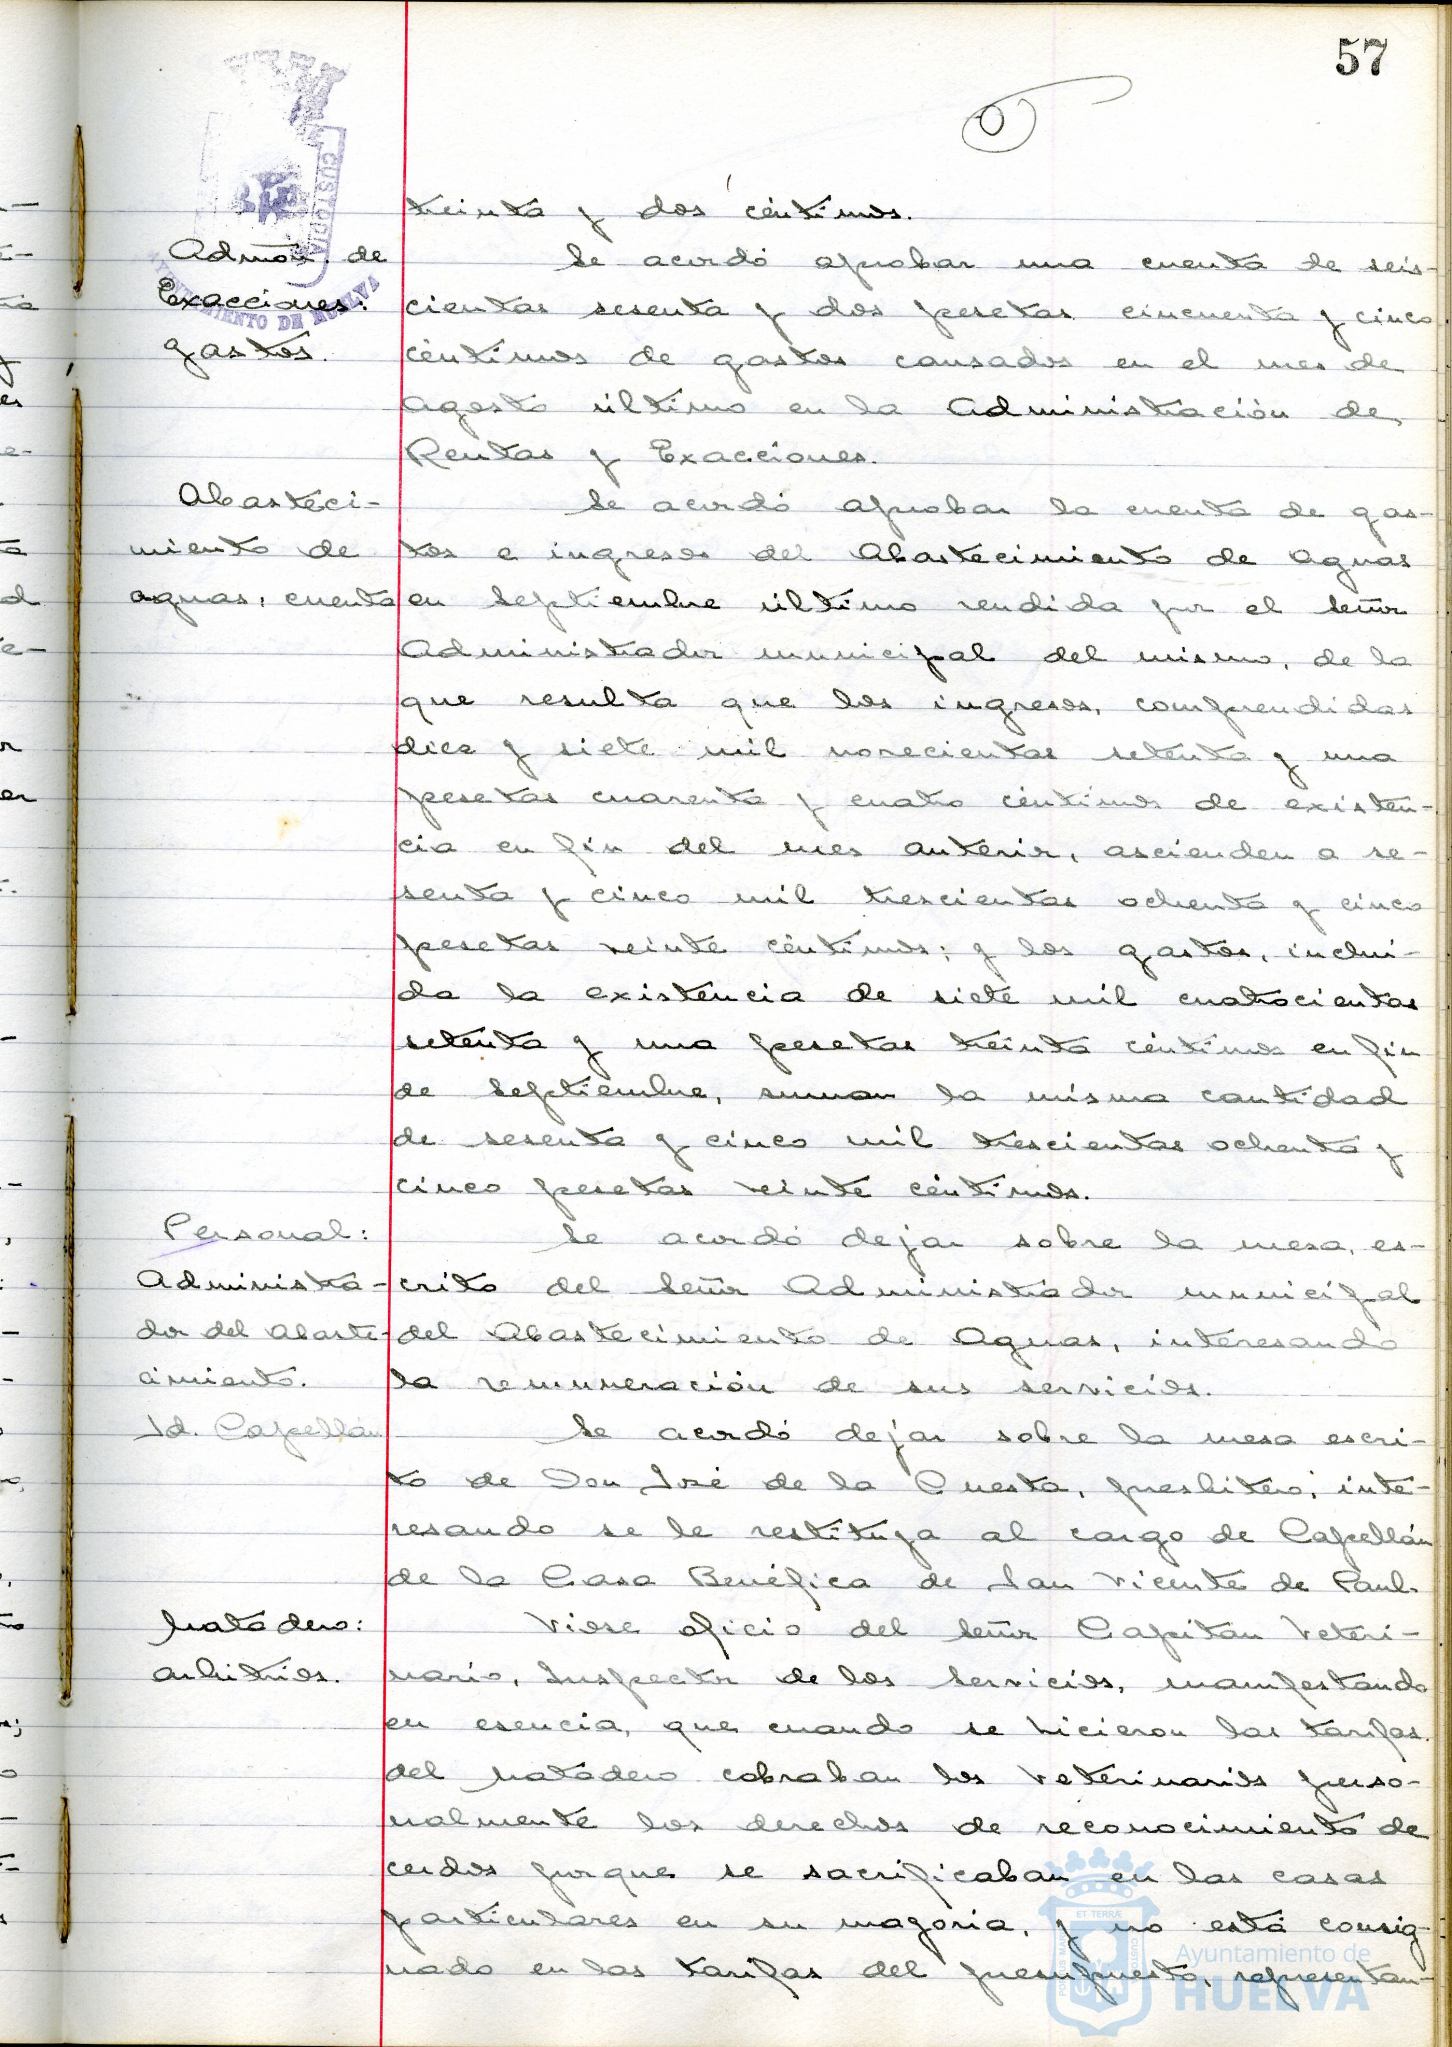 57
treinta y dos céntimos.
Admón. de
Exacciones:
gastos.
Se acordó aprobar una cuenta de seis-
cientas sesenta y dos pesetas cincuenta y cinco
céntimos de gastos causados en el mes de
Agosto último en la Administración de
Rentas y Exacciones.
Abasteci-
miento de
aguas: cuenta
Se acordó aprobar la cuenta de gas-
tos e ingresos del Abastecimiento de Aguas
en Septiembre último rendida por el señor
Administrador municipal del mismo, de la
que resulta que los ingresos, comprendidas
diez y siete mil novecientas setenta y una
pesetas cuarenta y cuatro céntimos de existen-
cia en fin del mes anterior, ascienden a se-
senta y cinco mil trescientas ochenta y cinco
pesetas veinte céntimos; y los gastos, inclui-
da la existencia de siete mil cuatrocientas
setenta y una pesetas treinta céntimos en fin
de Septiembre, suman la misma cantidad
de sesenta y cinco mil trescientas ochenta y
cinco pesetas veinte céntimos.
Personal:
Administra-
dor del Abaste-
cimiento.
Se acordó dejar sobre la mesa, es-
crito del Señor Administrador municipal
del Abastecimiento de Aguas, interesando
la remuneración de sus servicios.
Id. Capellán
Se acordó dejar sobre la mesa escri-
to de Don José de la Cuesta, presbítero, inte-
resando se le restituya al cargo de Capellán
de la Casa Benéfica de San Vicente de Paul.
Matadero:
arbitrios.
Viose oficio del Señor Capitán Veteri-
nario, Inspector de los Servicios, manifestando
en esencia, que cuando se hicieron las tarifas
del Matadero cobraban los Veterinarios perso-
nalmente los derechos de reconocimiento de
cerdos porque se sacrificaban en las casas
particulares en su mayoria, y no está consig-
nado en las tarifas del presupuesto, representan-
CUSTODIA
AYUNTAMIENTO DE HUELVA
Ayuntamiento de
HUELVA